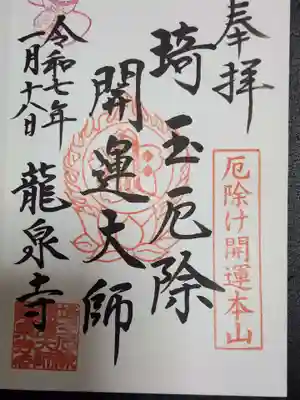 奉拝
厄除け開運本山
埼玉厄除
開運大師
令和七年
一月十八日
龍泉寺